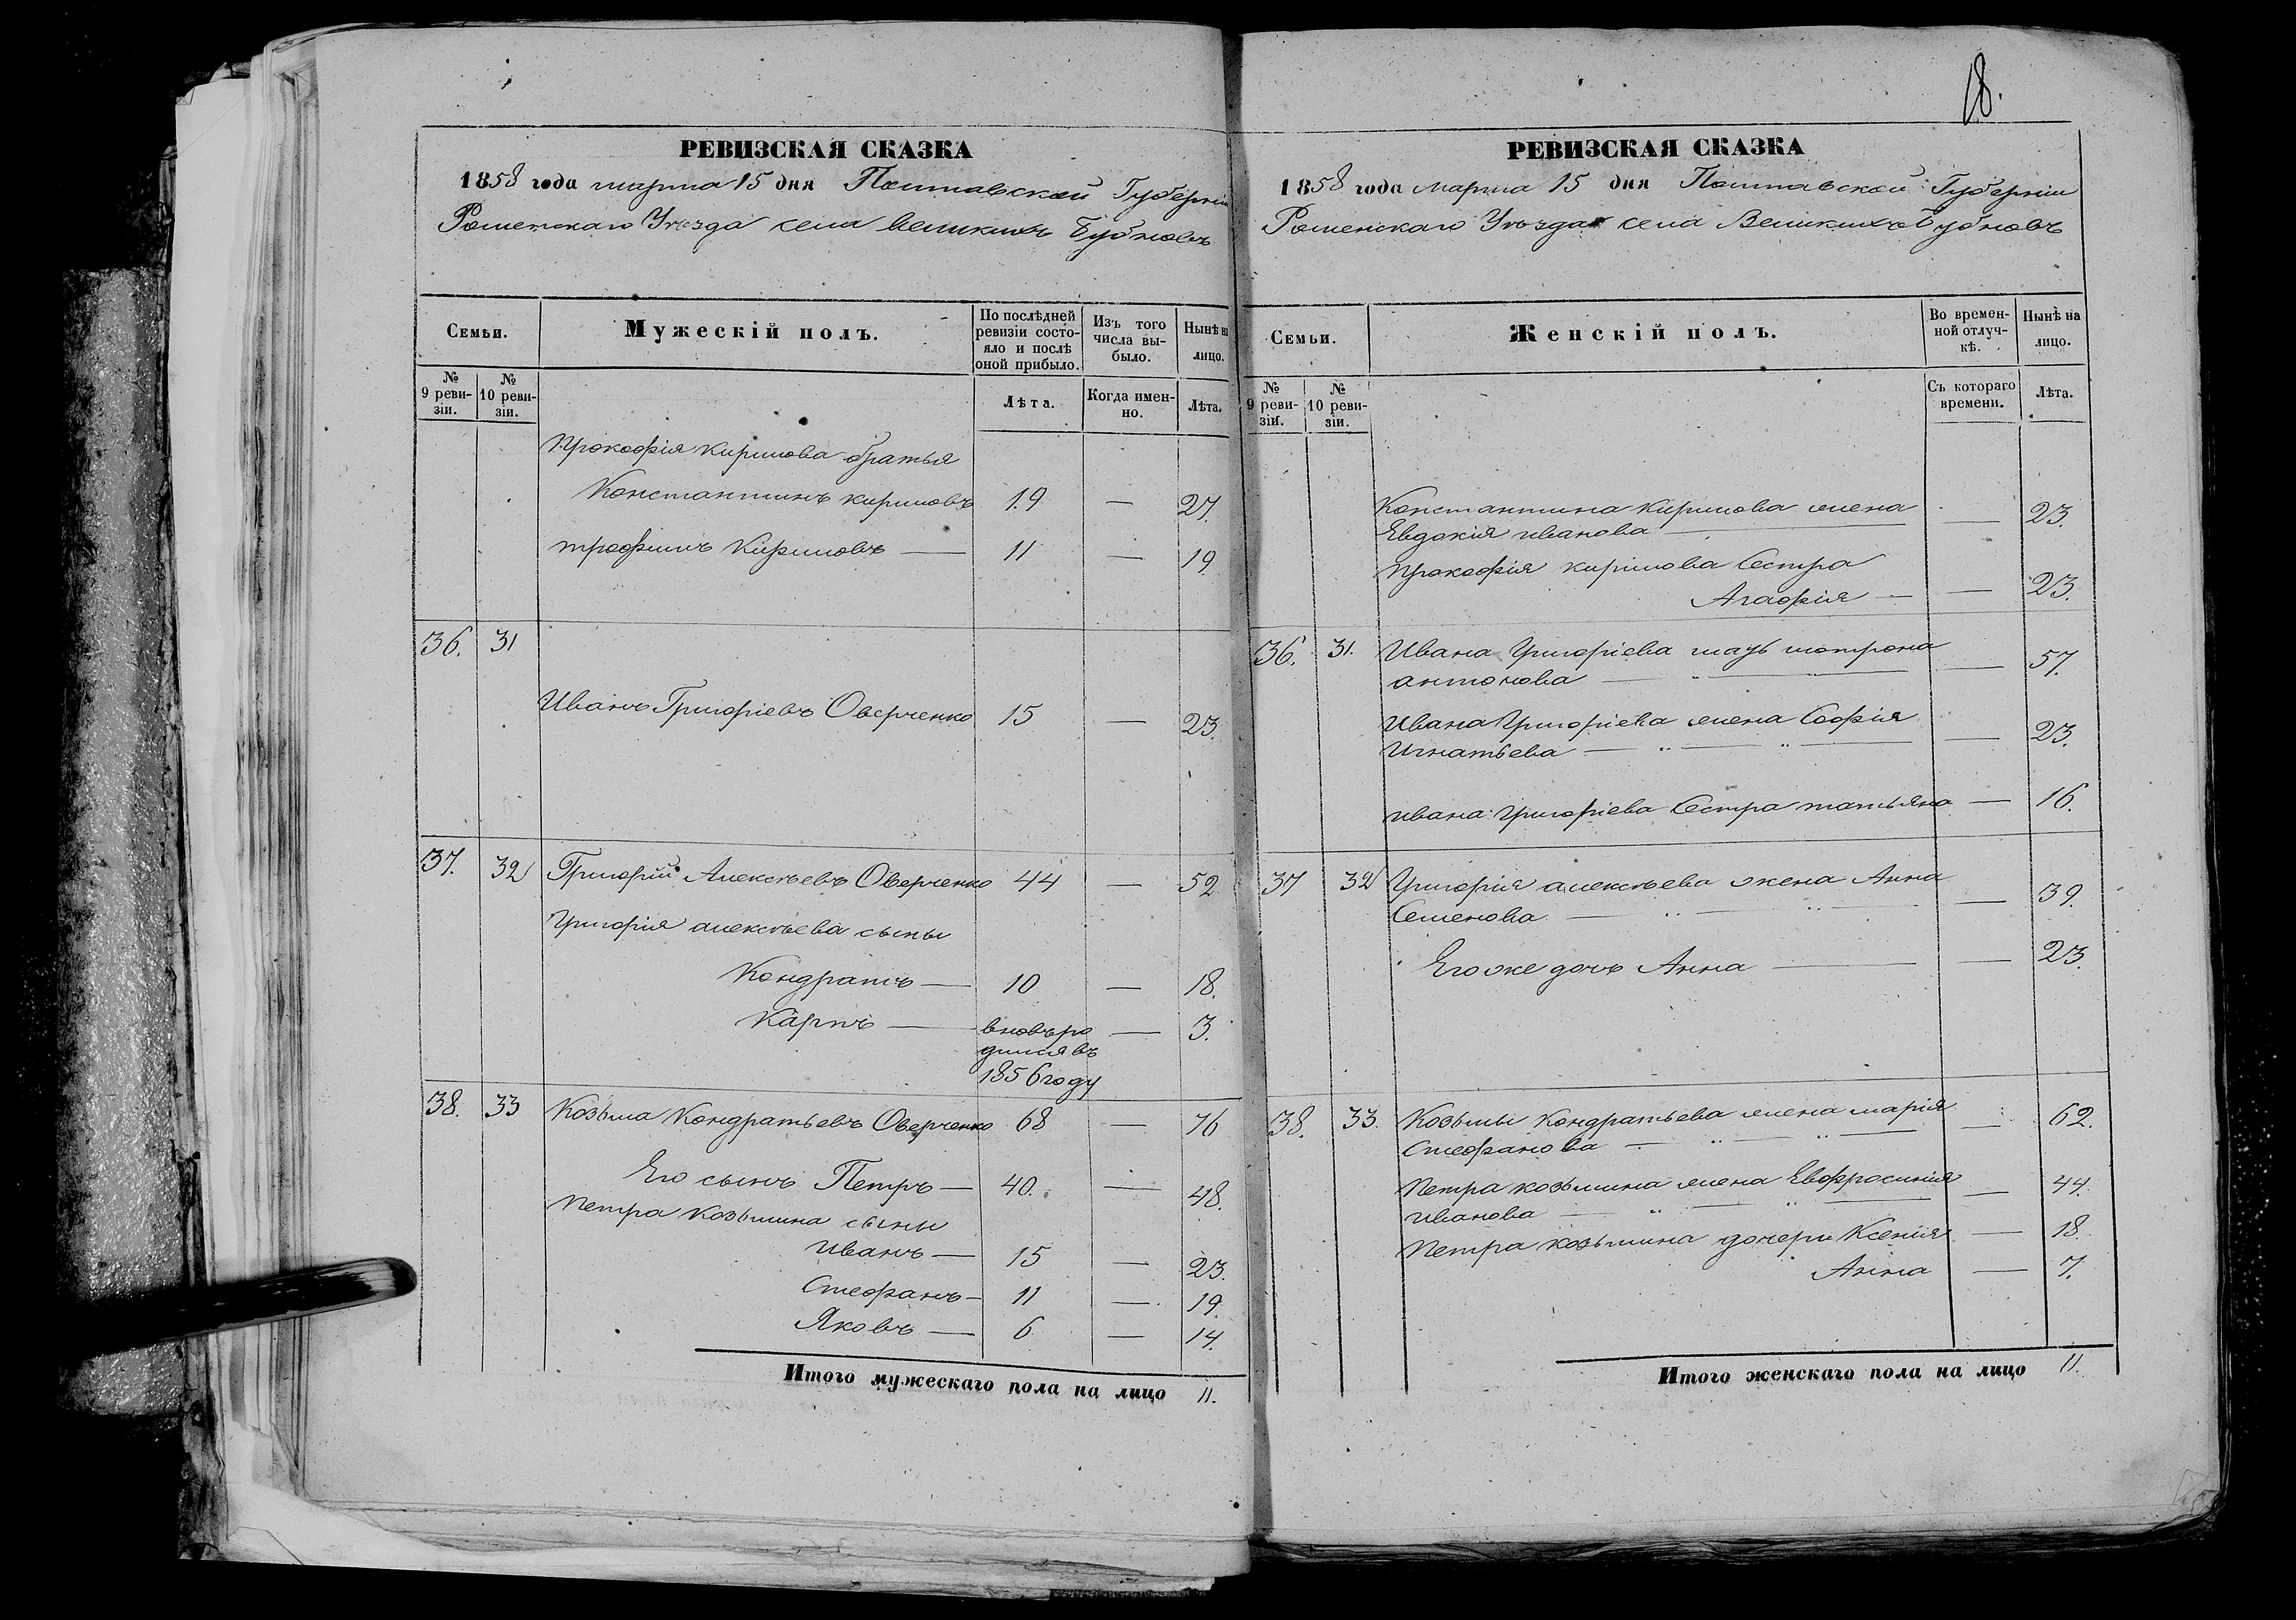 РЕВИЗСКАЯ СКАЗКА
1858 года марта 15 дня Полтавской Губерніи
Роменскаго Уѣзда села Великихъ Бубновъ
Семьи.
Мужескій полъ.
По послѣдней ревизіи состо-
яло и послѣ
оной прибыло.
Изъ того
числа вы-
было.
Нынѣ на
лицо.
№
9 реви-
зіи.
№
10 реви-
зіи.
Лѣта.
Когда имен-
но.
Лѣта.
Прокофія Кирилова братья
Константинъ Кириловъ 19 — 27.
Трофимъ Кириловъ — 11 — 19
36. 31
Иванъ Григоріевъ Оверченко 15 — 23.
37. 32 Григорій Алексѣевъ Оверченко 44 — 52
Григорія алексѣева сыны
Кондратъ — 10 — 18.
Карпъ — вновь ро — 3.
дился въ
1856 году
38. 33 Козьма Кондратьевъ Оверченко 68 — 76
Его сынъ Петръ — 40. — 48.
Петра Козьмина сыны
Иванъ — 15 — 23.
Стефанъ — 11 — 19.
Яковъ — 6 — 14.
Итого мужескаго пола на лицо 11.
18.
РЕВИЗСКАЯ СКАЗКА
1858 года марта 15 дня Полтавской Губерніи
Роменскаго Уѣзда села Великихъ Бубновъ
Семьи.
Женскій полъ.
Во времен-
ной отлуч-
кѣ.
Нынѣ на
лицо.
№
9 реви-
зіи.
№
10 реви-
зіи.
Съ котораго
времени.
Лѣта.
Константина Кирилова жена
Евдокія иванова — — 23.
Прокофія кирилова Сестра
Агафія — — 23.
36. 31. Ивана Григоріева мать мотрона
антонова — — 57.
Ивана Григоріева жена Софія
Игнатьева — — 23.
ивана Григоріева Сестра татьяна — 16.
37 32 Григорія алексѣева жена Анна
Семенова — — 39.
Его же дочь Анна — — 23.
38. 33. Козьмы Кондратьева жена марія
Стефанова — — 62.
Петра козьмина жена Евфросинія
иванова — — 44.
Петра козьмина дочери Ксенія — 18.
Анна — 7.
Итого женскаго пола на лицо 11.